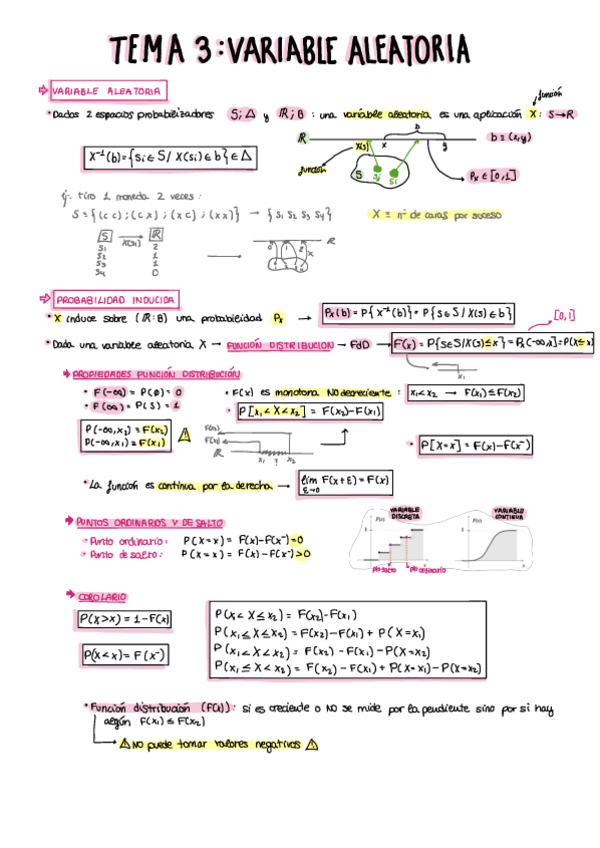 TEMA 3: VARIABLE ALEATORIA
⇨ VARIABLE ALEATORIA
función
• Dados 2 espacios probabilizadores S; Δ y ℝ; B : una variable aleatoria es una aplicación X: S→ℝ
X⁻¹(b) = {si ∈ S / X(si) ∈ b} ∈ Δ
ℝ X(s) x b y b ≡ (x,y)
función S si si Px ∈ [0,1]
ej: tiro 1 moneda 2 veces:
S = {(c c) ; (c x) ; (x c) ; (x x)} → {S1 S2 S3 S4} X ≡ nº de caras por suceso
S → X(si) ℝ
S1 2
S2 1
S3 1
S4 0
0 1 2 ℝ
X
⇨ PROBABILIDAD INDUCIDA
• X induce sobre (ℝ; B) una probabilidad Px → Px(b) = P{X⁻¹(b)} = P{s∈S / X(s) ∈ b} [0,1]
• Dada una variable aleatoria X → FUNCIÓN DISTRIBUCION → FdD → F(x) = P{s∈S/X(s)≤x} = Px(-∞,x] = P(X≤x)
x1
→ PROPIEDADES FUNCIÓN DISTRIBUCIÓN
• F(-∞) = P(Ø) = 0
• F(∞) = P(S) = 1
• F(x) es monotona NO decreciente : x1<x2 → F(x1) ≤ F(x2)
• P[x1 < X ≤ x2] = F(x2)-F(x1)
P(-∞,x2) = F(x2)
P(-∞,x1) = F(x1) ⚠
F(x2)
F(x1)
ℝ x1 ? x2
• P[X=x] = F(x)-F(x⁻)
• La función es continua por la derecha → lim F(x+ε) = F(x)
ε→0
→ PUNTOS ORDINARIOS Y DE SALTO
• Punto ordinario: P(X=x) = F(x)-F(x⁻)=0
• Punto de salto: P(X=x) = F(x)-F(x⁻)>0
VARIABLE DISCRETA
pto salto pto ordinario
VARIABLE CONTINUA
→ COROLARIO
P(X>x) = 1-F(x)
P(X<x) = F(x⁻)
P(x1 < X ≤ x2) = F(x2)-F(x1)
P(x1 ≤ X ≤ x2) = F(x2)-F(x1) + P(X=x1)
P(x1 < X < x2) = F(x2) - F(x1) - P(X=x2)
P(x1 ≤ X < x2) = F(x2) - F(x1) + P(X=x1) - P(X=x2)
• Función distribución (F(x)): si es creciente o NO se mide por la pendiente sino por si hay
algún F(x1) ≤ F(x2)
→ ⚠ NO puede tomar valores negativos ⚠